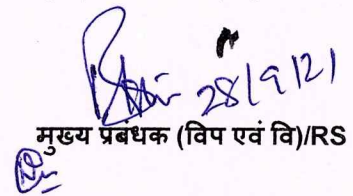 28/9/21
मुख्य प्रबंधक (विप एवं वि)/RS